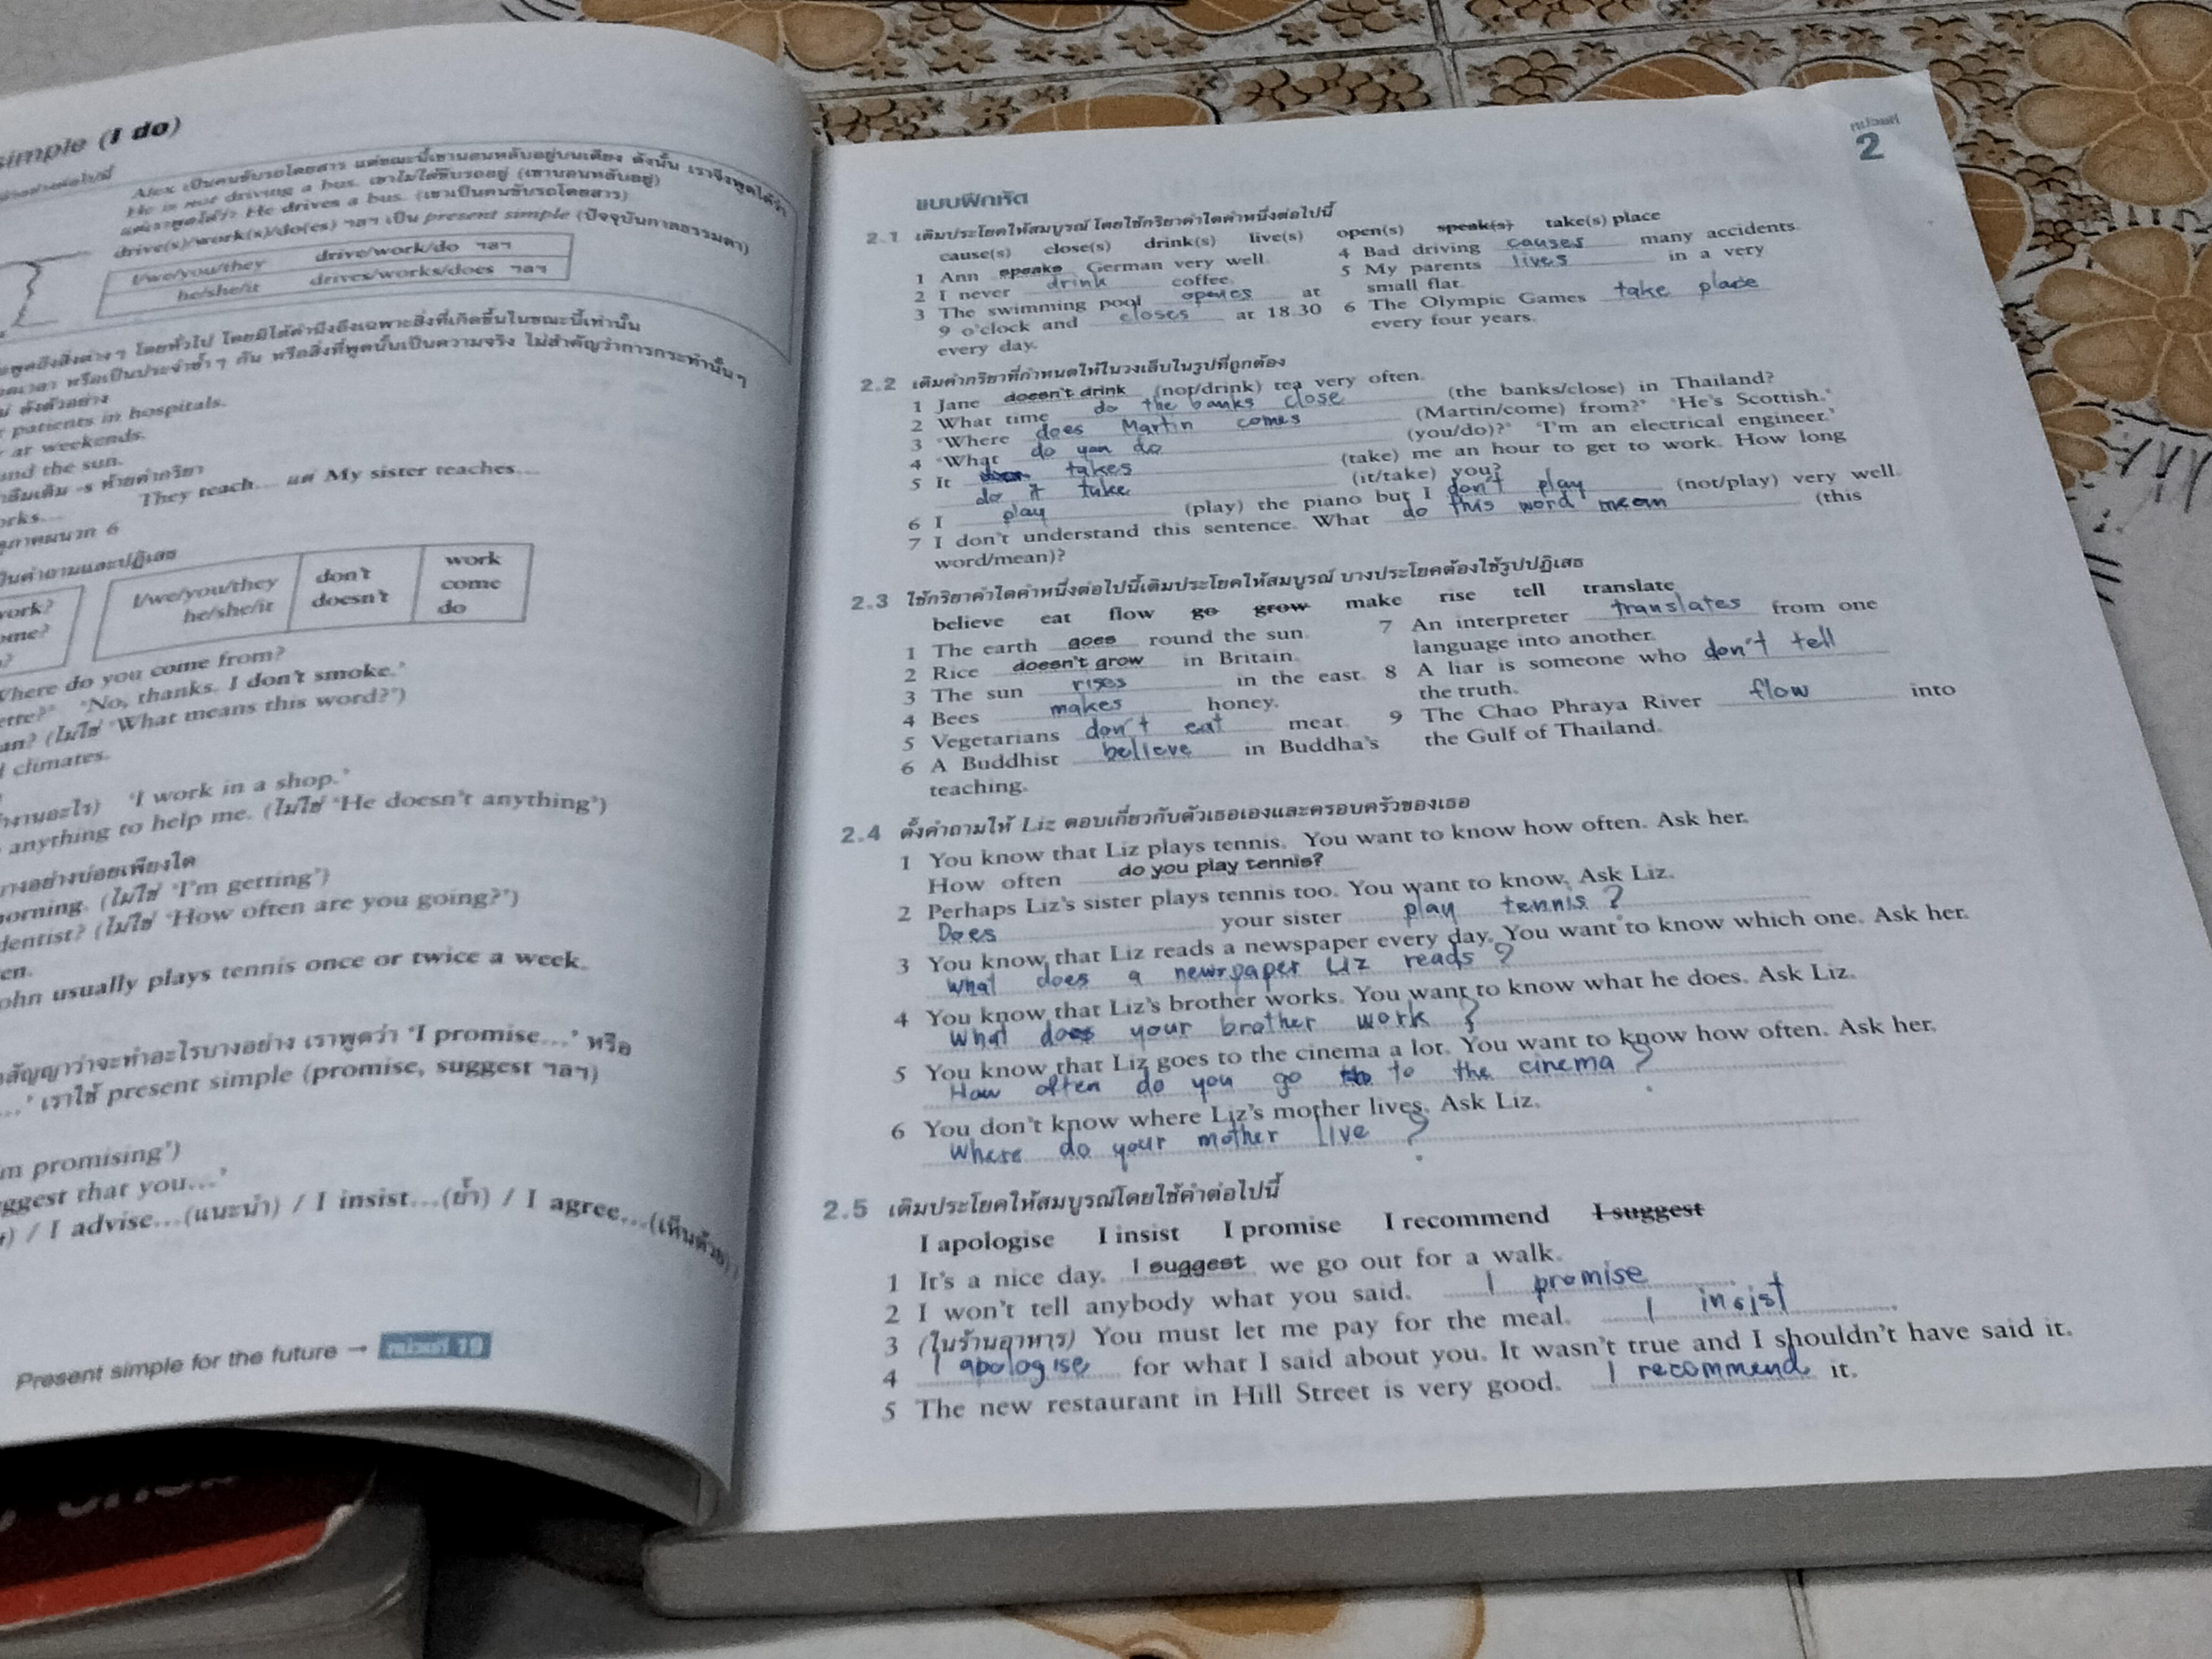 simple (I do)
Alex เป็นคนขับรถโดยสาร แต่ขณะนี้เขานอนหลับอยู่บนเตียง ดังนั้น เราจึงพูดได้ว่า
He is not driving a bus. เขาไม่ได้ขับรถอยู่ (เขานอนหลับอยู่)
แต่เราพูดได้ว่า He drives a bus. (เขาเป็นคนขับรถโดยสาร)
drive(s)/work(s)/do(es) ฯลฯ เป็น present simple (ปัจจุบันกาลธรรมดา)
I/we/you/they drive/work/do ฯลฯ
he/she/it drives/works/does ฯลฯ
พูดถึงสิ่งต่างๆ โดยทั่วไป โดยมิได้คำนึงถึงเฉพาะสิ่งที่เกิดขึ้นในขณะนี้เท่านั้น
หรือเป็นประจำซ้ำๆ กัน หรือสิ่งที่พูดนั้นเป็นความจริง ไม่สำคัญว่าการกระทำนั้นๆ
ดังตัวอย่าง
patients in hospitals.
at weekends.
und the sun.
เติม -s ท้ายคำกริยา
orks... They teach... แต่ My sister teaches...
ภาคผนวก 6
เป็นคำถามและปฏิเสธ
work? I/we/you/they don't work
ome? he/she/it doesn't come
do
Where do you come from?
ette?' 'No, thanks. I don't smoke.'
an? (ไม่ใช่ 'What means this word?')
d climates.
ทำงานอะไร) 'I work in a shop.'
anything to help me. (ไม่ใช่ 'He doesn't anything')
บางอย่างบ่อยเพียงใด
morning. (ไม่ใช่ 'I'm getting')
dentist? (ไม่ใช่ 'How often are you going?')
en.
ohn usually plays tennis once or twice a week.
สัญญาว่าจะทำอะไรบางอย่าง เราพูดว่า 'I promise...' หรือ
...' เราใช้ present simple (promise, suggest ฯลฯ)
'm promising')
ggest that you...'
) / I advise...(แนะนำ) / I insist...(ย้ำ) / I agree...(เห็นด้วย)
Present simple for the future → หน่วยที่ 19
หน่วยที่
2
แบบฝึกหัด
2.1 เติมประโยคให้สมบูรณ์ โดยใช้กริยาคำใดคำหนึ่งต่อไปนี้
cause(s) close(s) drink(s) live(s) open(s) speak(s) take(s) place
1 Ann speaks German very well.
2 I never drink coffee.
3 The swimming pool opens at
9 o'clock and closes at 18.30
every day.
4 Bad driving causes many accidents.
5 My parents lives in a very
small flat.
6 The Olympic Games take place
every four years.
2.2 เติมคำกริยาที่กำหนดให้ในวงเล็บในรูปที่ถูกต้อง
1 Jane doesn't drink (not/drink) tea very often.
2 What time do the banks close (the banks/close) in Thailand?
3 'Where does Martin comes (Martin/come) from?' 'He's Scottish.'
4 'What do you do (you/do)?' 'I'm an electrical engineer.'
5 It takes (take) me an hour to get to work. How long
do it take (it/take) you?
6 I play (play) the piano but I don't play (not/play) very well.
7 I don't understand this sentence. What do this word mean (this
word/mean)?
2.3 ใช้กริยาคำใดคำหนึ่งต่อไปนี้เติมประโยคให้สมบูรณ์ บางประโยคต้องใช้รูปปฏิเสธ
believe eat flow go grow make rise tell translate
1 The earth goes round the sun.
2 Rice doesn't grow in Britain.
3 The sun rises in the east.
4 Bees makes honey.
5 Vegetarians don't eat meat.
6 A Buddhist believe in Buddha's
teaching.
7 An interpreter translates from one
language into another.
8 A liar is someone who don't tell
the truth.
9 The Chao Phraya River flow into
the Gulf of Thailand.
2.4 ตั้งคำถามให้ Liz ตอบเกี่ยวกับตัวเธอเองและครอบครัวของเธอ
1 You know that Liz plays tennis. You want to know how often. Ask her.
How often do you play tennis?
2 Perhaps Liz's sister plays tennis too. You want to know. Ask Liz.
Does your sister play tennis?
3 You know that Liz reads a newspaper every day. You want to know which one. Ask her.
What does a newspaper Liz reads?
4 You know that Liz's brother works. You want to know what he does. Ask Liz.
What does your brother work?
5 You know that Liz goes to the cinema a lot. You want to know how often. Ask her.
How often do you go to to the cinema?
6 You don't know where Liz's mother lives. Ask Liz.
Where do your mother live?
2.5 เติมประโยคให้สมบูรณ์โดยใช้คำต่อไปนี้
I apologise I insist I promise I recommend I suggest
1 It's a nice day. I suggest we go out for a walk.
2 I won't tell anybody what you said. I promise.
3 (ในร้านอาหาร) You must let me pay for the meal. I insist.
4 I apologise for what I said about you. It wasn't true and I shouldn't have said it.
5 The new restaurant in Hill Street is very good. I recommend it.